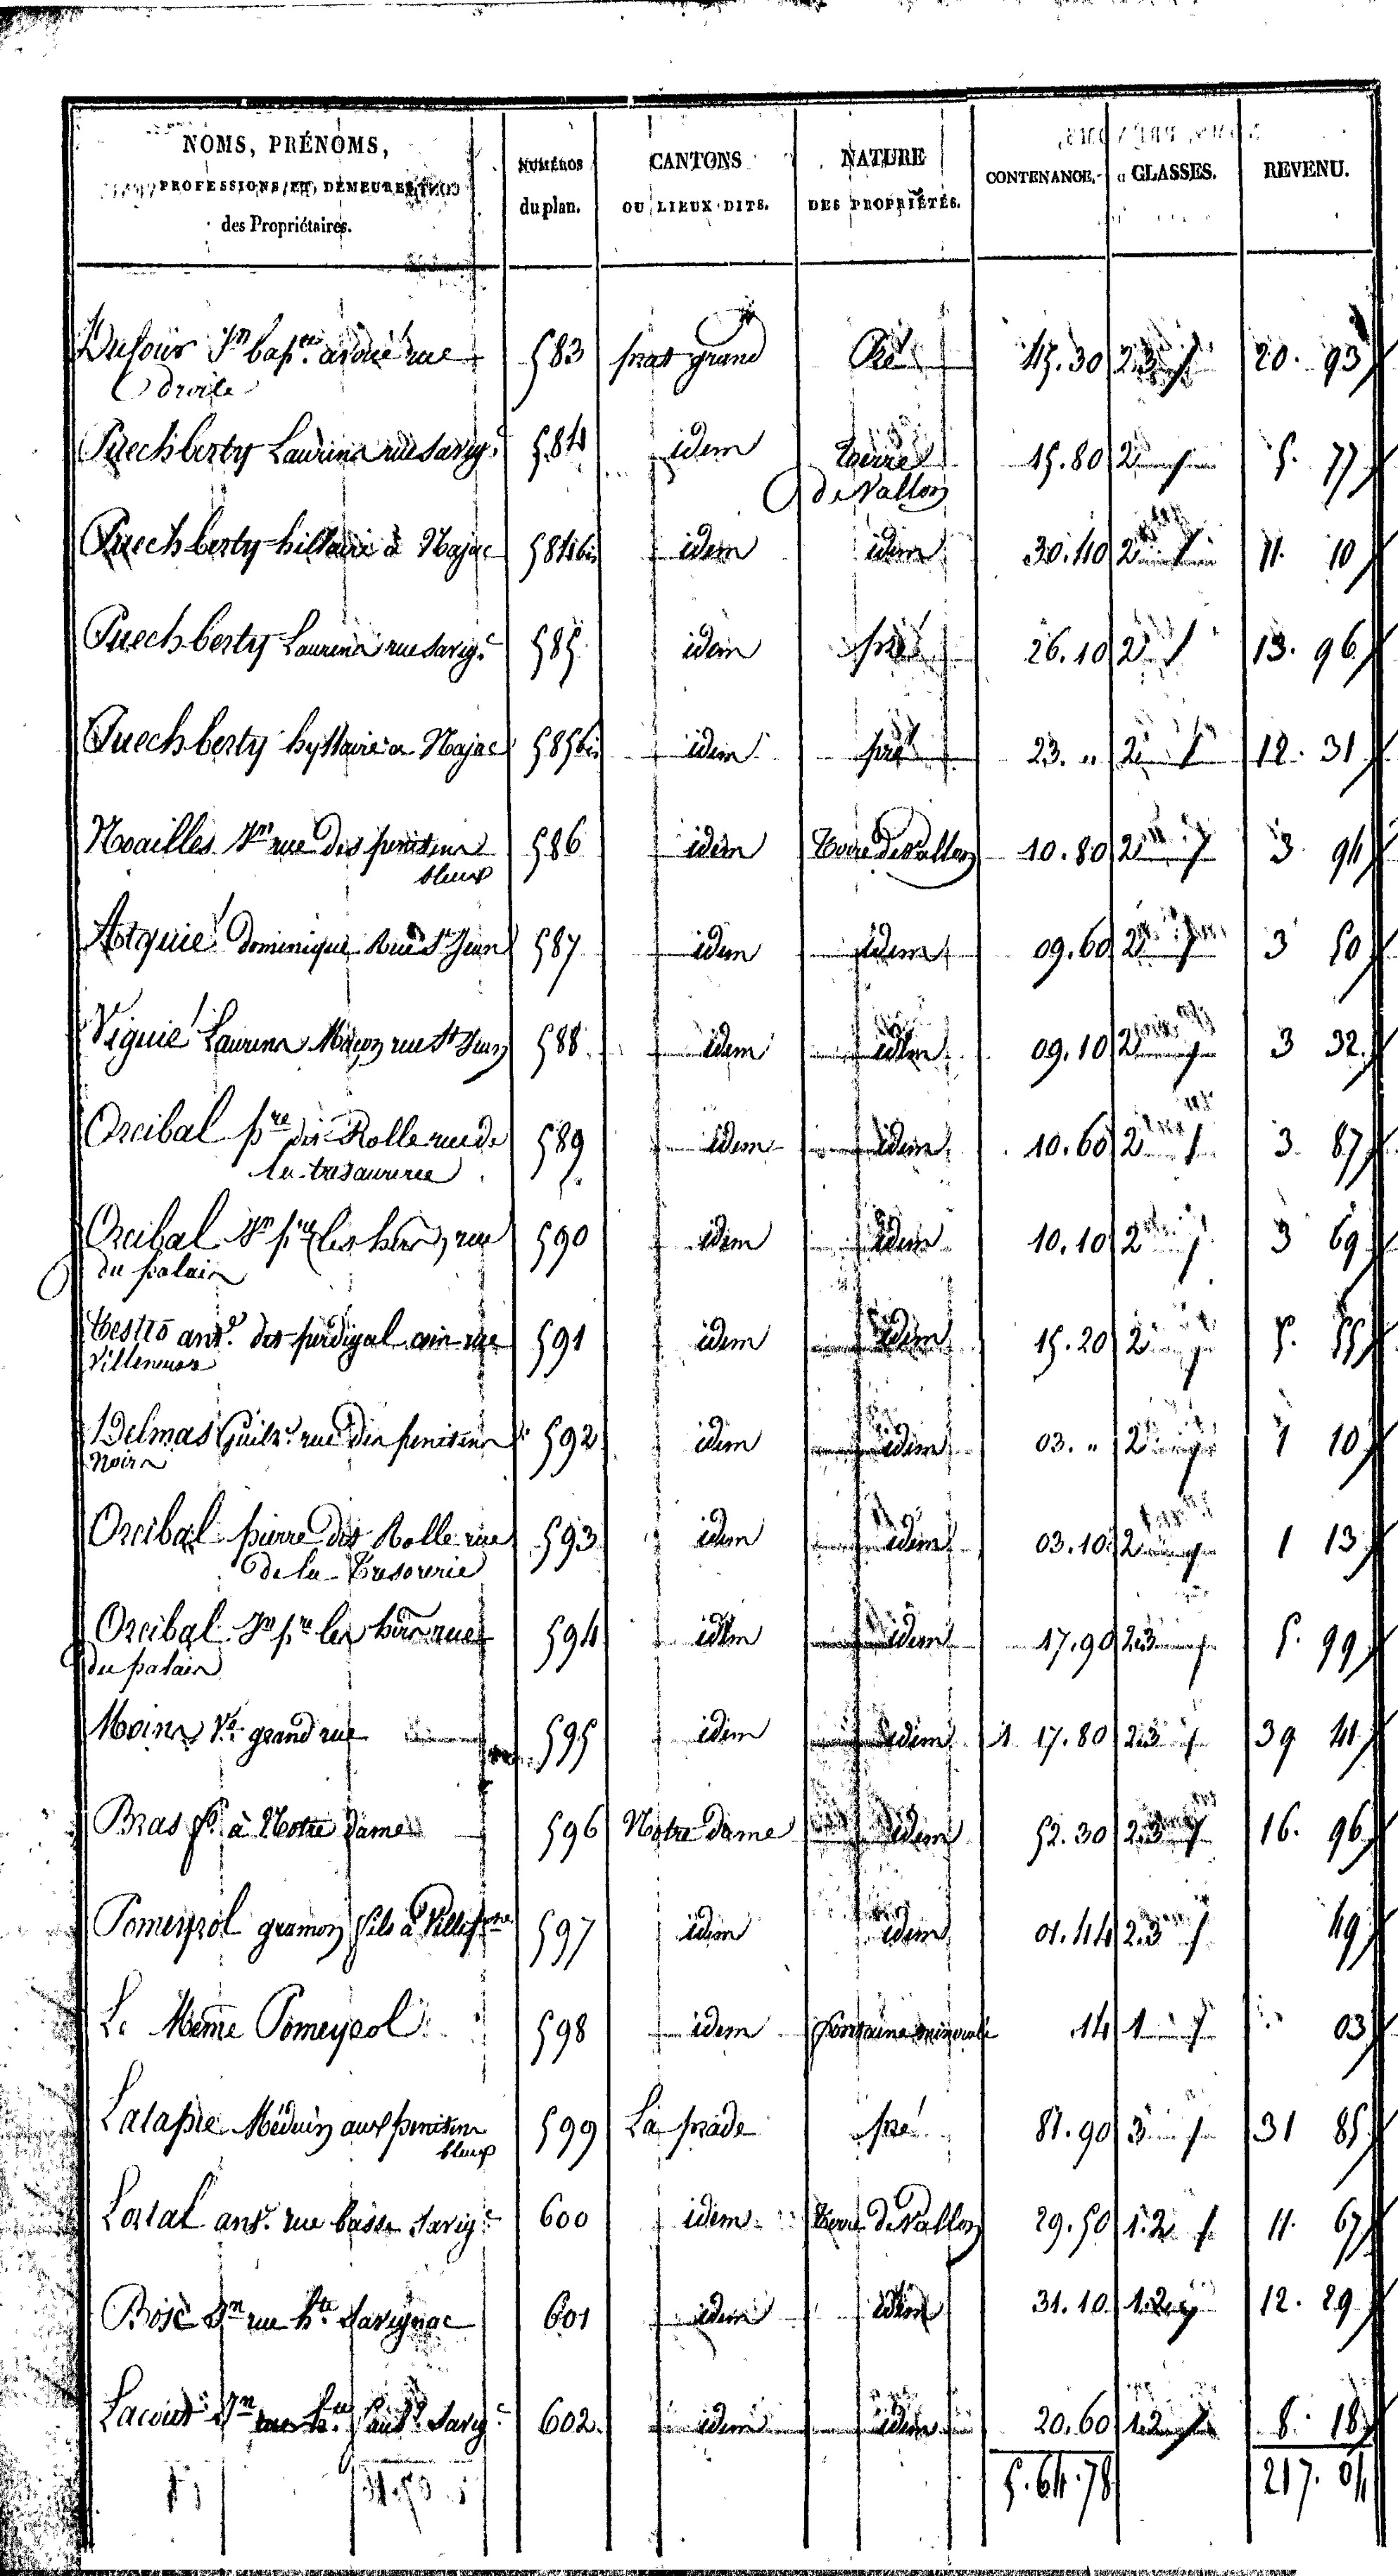 NOMS, PRÉNOMS, PROFESSIONS ET DEMEURES des Propriétaires. NUMÉROS du plan. CANTONS OU LIEUX DITS. NATURE DES PROPRIÉTÉS. CONTENANCE. CLASSES. REVENU.
Dufour Jn bapte avoué rue 583 prat grand Pré 45.30 2.3 20. 93
droite
Puechberty Laurens rue Savigc 584 idem terre 15.80 2 5. 77
de Vallon
Puechberty hillaire à Najac 584 bis idem idem 30.40 2 11. 10
Puechberty Laurens rue Savigc 585 idem pré 26.10 2 13. 96
Puechberty hyllaire a Najac 585 bis idem pré 23. " 2 12. 31
Noailles Jn rue des penitens 586 idem Terre de Vallon 10.80 2 3 94
bleux
Atquié dominique Rue St Jean 587 idem idem 09.60 2 3 50
Viguié Laurens Maçon rue St Jean 588 idem idem 09.10 2 3 32
Orcibal pre dit Rolle rue de 589 idem idem 10.60 2 3. 87
la tresaurerie
Orcibal Jn pre les hers, rue 590 idem idem 10.10 2 3 69
du palais
Testes ante dos perdigal rue 591 idem idem 15.20 2 5. 55
Villeneuve
Delmas Guile rue des penitens 592 idem idem 03. " 2 1 10
Noirs
Orcibal pierre dit Rolle rue 593 idem idem 03.10 2 1 13
de la Tresorerie
Orcibal Jn pre les hers rue 594 idem idem 17.90 2.3 5. 99
du palais
Moins Ve grand rue 595 idem idem 1 17.80 2.3 39 41
Bras à Notre Dame 596 Notre Dame idem 52.30 2.3 16. 96
Pomeyrol gramon fils à Villefche 597 idem idem 01.44 2.3 49
Le Même Pomeyrol 598 idem fontaine minerale .14 1 03
Lalapie Médecin aux penitens 599 La prade pré 81.90 3 31 85
bleux
Lortal ante rue basse Savigc 600 idem Terre de Vallon 29.50 1.2 11. 67
Bosc Jn rue hte Savignac 601 idem idem 31.10 1.2 12. 29
Lacout Jn Savigc 602 idem idem 20.60 1.2 8. 18
5.64.78 217. 04